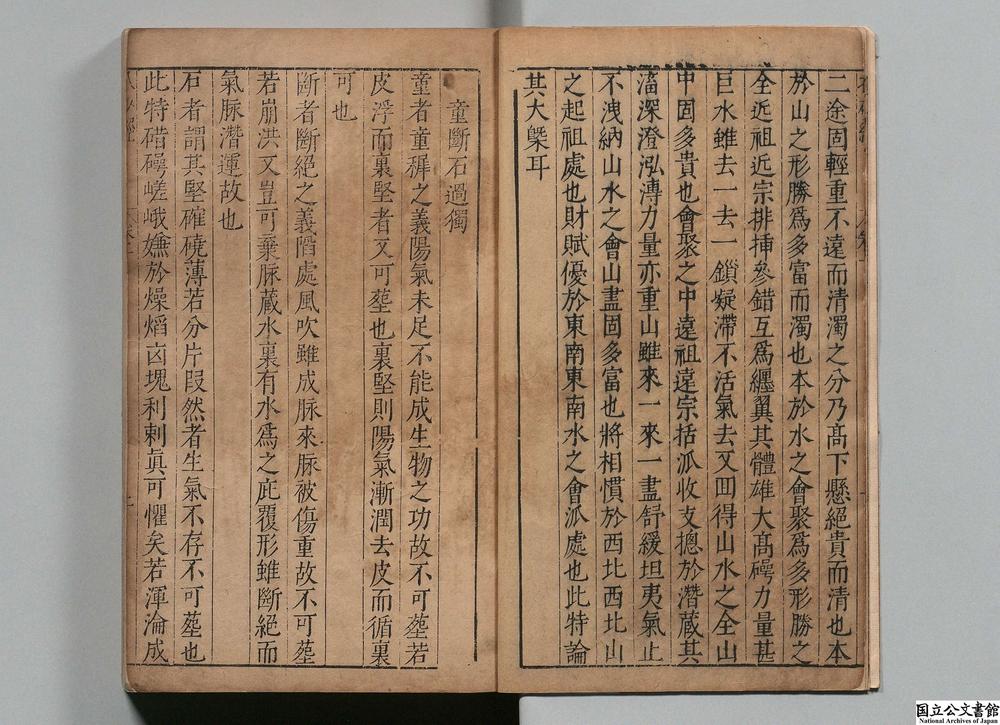 二途固輕重不遠而清濁之分乃髙下懸絕貴而清也本
於山之形勝爲多富而濁也本於水之會聚爲多形勝之
全近祖近宗排揷參錯互爲纒翼其體雄大髙礴力量甚
巨水雖去一去一鎖凝滯不活氣去又囬得山水之全山
中固多貴也會聚之中遠祖遠宗括派收支摠於潛藏其
滀深澄泓漙力量亦重山雖來一來一盡舒緩坦夷氣止
不洩納山水之會山盡固多富也將相慣於西北西北山
之起祖處也財賦優於東南東南水之會派處也此特論
其大槩耳
童斷石過獨
童者童穉之義陽氣未足不能成生物之功故不可塟若
皮浮而裏堅者又可塟也裏堅則陽氣漸潤去皮而循裏
可也
斷者斷絕之義陷處風吹雖成脉來脉被傷重故不可塟
若崩洪又豈可棄脉蔵水裏有水爲之庇覆形雖斷絕而
氣脉潛運故也
石者謂其堅確磽薄若分片叚然者生氣不存不可塟也
此特碏礴嵯峨嫌於燥熖凶塊利刺眞可懼矣若渾淪成
国立公文書館
National Archives of Japan